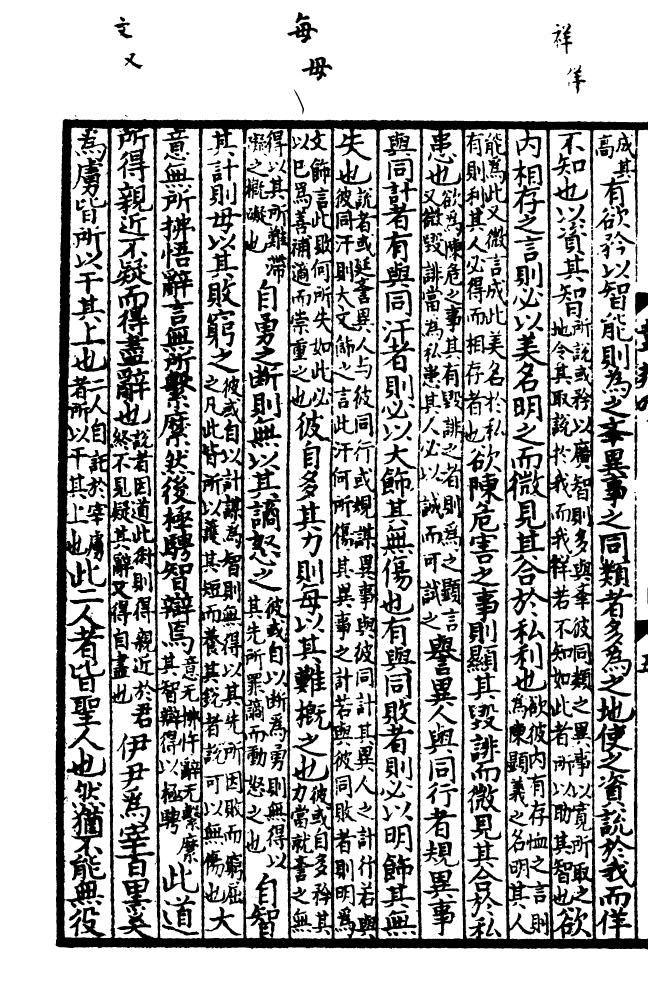 祥佯
每毋
文又
成其
高
有欲矜以智能則為之舉異事之同類者多為之地使之資說於我而佯
不知也以資其智
所說或矜以廣智則多與舉彼同類之異事以寬所取之
地令其取說於我而我祥若不知如此者所以助其智也
欲
内相存之言則必以美名明之而微見其合於私利也
欲彼内有存恤之言則
為陳顯義之名明其人
能為此又微言成此美名於私
有則利其人必得而相存者也
欲陳危害之事則顯其毀誹而微見其合於私
患也
欲為陳危之事其有毀誹之者則為之顯言
又微毀誹當為私患其人必以誠而可試之
譽異人與同行者規異事
與同計者有與同汙者則必以大飾其無傷也有與同敗者則必以明飾其無
失也
說者或延譽異人与彼同行或規謀異事與彼同計其異人之計行若與
彼同汙則大文飾之言此汙何所傷其異事之計若與彼同敗者則明為
文飾言此敗何所失如此必
以已為善補過而崇重之也
彼自多其力則毋以其難概之也
彼或自多矜其
力當就譽之無
得以其所難滯
礙之概礙也
自勇之斷則無以其謫怒之
彼或自以斷為勇則無得以
其先所罪謫而動怒之也
自智
其計則毋以其敗窮之
彼或自以計謀為智則無得以其先所因敗而窮屈
之凡此皆所以護其短而養其銳者說可以無傷也
大
意無所拂悟辭言無所繫縻然後極騁智辯焉
意无拂忤辭无繫縻
其智辯得以極騁
此道
所得親近不疑而得盡辭也
說者因道此術則得親近於君
終不見疑其辭又得自盡也
伊尹為宰百里奚
為虜皆所以干其上也
二人自託於宰虜
者所以干其上也
此二人者皆聖人也然猶不能無役